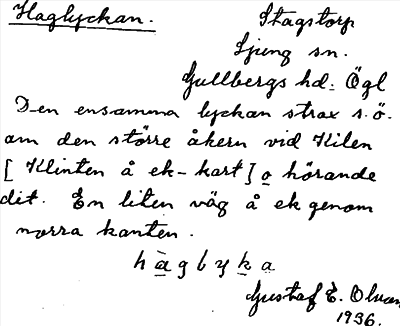 Haglyckan. Stagstorp
Ljung sn.
Gullbergs hd: Ögl
Den ensamma lyckan strax s.ö.
om den större åkern vid Kilen
[ Klinten å ek-kart] o hörande
dit. En liten väg å ek genom
norra kanten.
hàgbyka
Gustaf E. Olvan
1936.